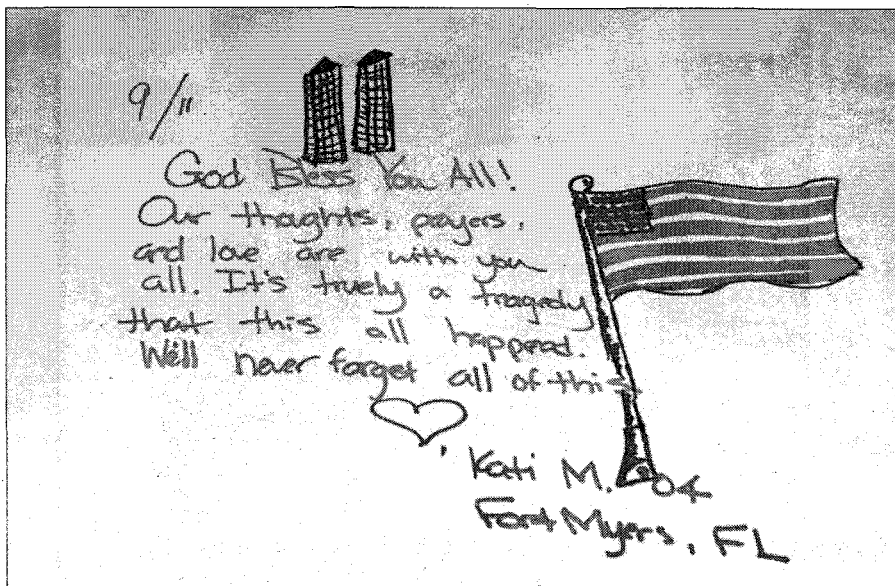 9/11
God Bless You All!
Our thoughts, prayers,
and love are with you
all. It's truely a tragedy
that this all happend.
We'll never forget all of this
Kati M. 04
Fort Myers, FL